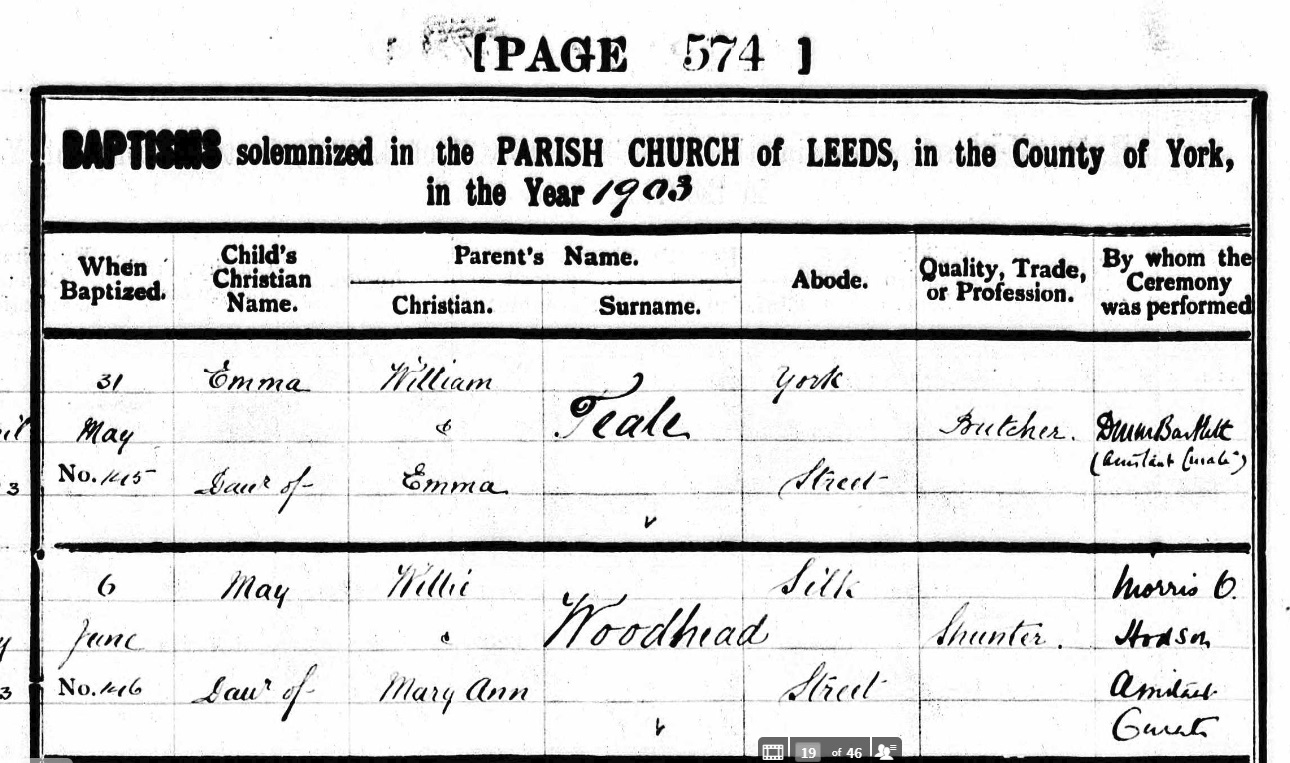 [PAGE 574 ]
BAPTISMS solemnized in the PARISH CHURCH of LEEDS, in the County of York,
in the Year 1903
When Baptized.
Child's Christian Name.
Parent's Name.
Christian.
Surname.
Abode.
Quality, Trade, or Profession.
By whom the Ceremony was performed
31 Emma William York
May & Teale Butcher. Bartlett
(Assistant Curate)
No. Daur of Emma Street
6 May Willie Silk Morris O.
June & Woodhead Shunter. Hodson
No. Daur of Mary Ann Street Assistant
Curate
3
3
19 of 46